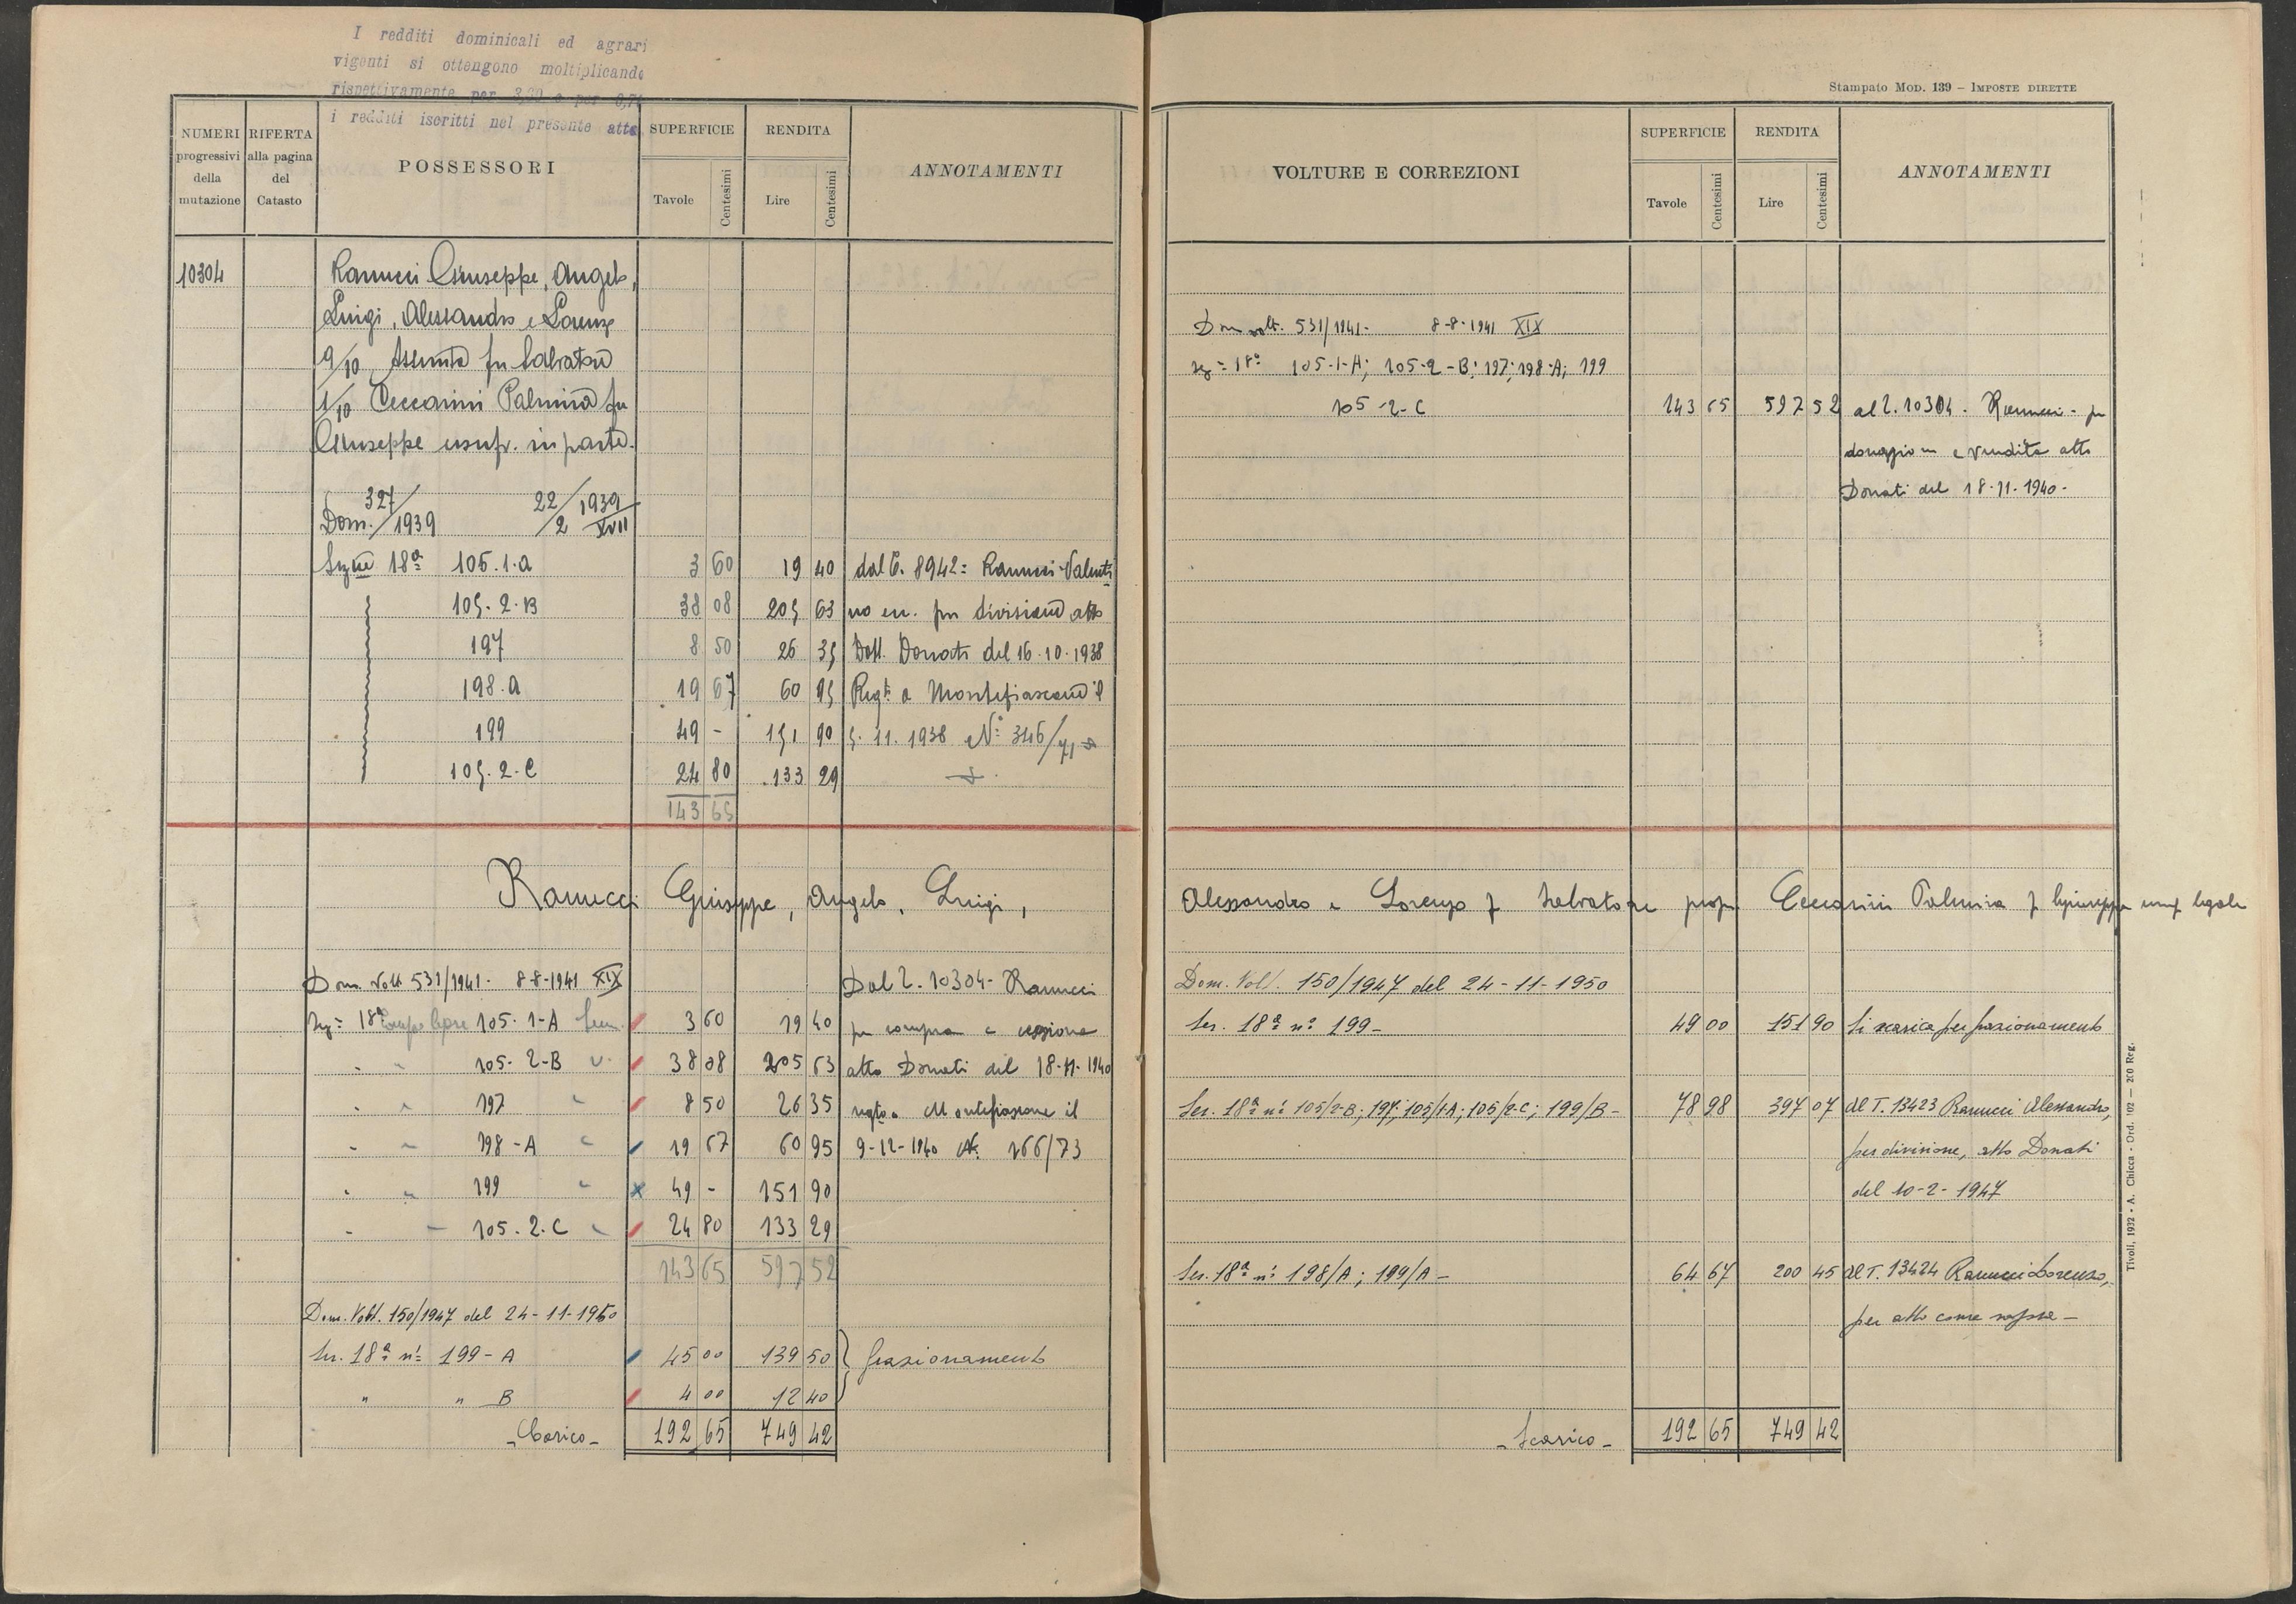 I redditi dominicali ed agrari
vigenti si ottengono moltiplicando
rispettivamente per 3,60 e per 0,7
i redditi iscritti nel presente atto
NUMERI progressivi della mutazione
RIFERTA alla pagina del Catasto
POSSESSORI
SUPERFICIE
Tavole Centesimi
RENDITA
Lire Centesimi
ANNOTAMENTI
10304 Ranucci Giuseppe, Angelo,
Luigi, Alessandro e Lorenzo
9/10 Assunta fu Salvatore
1/10 Ceccarini Palmira fu
Giuseppe usufr. in parte.
Dom. 327/1939 22/2 1939 XVII
Sezne 18ª 105.1.a 3 60 19 40 dal C. 8942= Ranucci Valenti
105.2.B 38 08 205 63 no en. per divisione atto
197 8 50 26 35 Dott. Donati del 16.10.1938
198.a 19 67 60 95 Regto a Montefiascone il
199 49 - 151 90 5.11.1938 Nº 346/71
105.2.C 24 80 133 29
143 65
Ranucci Giuseppe, Angelo, Luigi,
Dom. Volt 531/1941. 8-8-1941 XIX Dal 2. 10304- Ranucci
Sez= 18ª 105. 1-A 3 60 19 40 per compra e cessione
105. 2-B 38 08 205 63 atto Donati del 18-11-1940
197 8 50 26 35 regto a Montefiascone il
198-A 19 67 60 95 9-12-1940 Nº 166/73
199 49 - 151 90
105.2.C 24 80 133 29
143 65 597 52
Dom. Volt. 150/1947 del 24-11-1950
Sez. 18ª nⁱ 199-A 45 00 139 50 frazionamento
" " B 4 00 12 40
- Carico - 192 65 749 42
Stampato Mod. 139 – Imposte dirette
VOLTURE E CORREZIONI
SUPERFICIE
Tavole Centesimi
RENDITA
Lire Centesimi
ANNOTAMENTI
Dom volt. 531/1941- 8-8-1941 XIX
sez= 18ª 105-1-A; 105-2-B; 197; 198-A; 199
105-2-C 143 65 597 52 al 2. 10304. Ranucci - per
donazione e vendita atto
Donati del 18-11-1940-
Alessandro e Lorenzo f Salvatore prop Ceccarini Palmira f Giuseppe usuf legale
Dom. Volt. 150/1947 del 24-11-1950
Sez. 18ª nº 199- 49 00 151 90 Si scarica per frazionamento
Sez. 18ª nⁱ 105/2-B; 197; 105/1-A; 105/2-C; 199/B- 78 98 397 07 al T. 13423 Ranucci Alessandro,
per divisione, atto Donati
del 10-2-1947
Sez. 18ª nⁱ 198/A; 199/A- 64 67 200 45 al T. 13424 Ranucci Lorenzo,
per atto come sopra -
- Scarico - 192 65 749 42
Tivoli, 1932 - A. Chicca - Ord. 102 — 200 Reg.